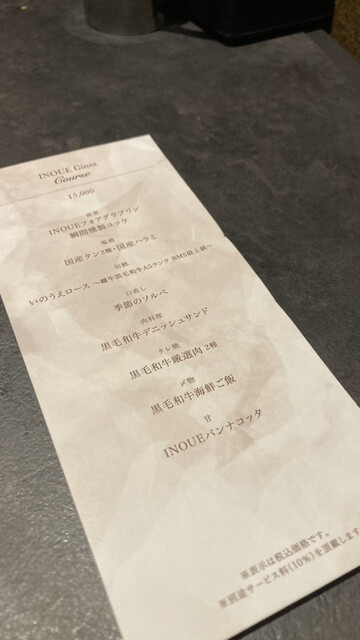 INOUE Ginza
Course
15,000
前菜
INOUEフォアグラプリン
瞬間燻製ユッケ
塩焼
国産タン2種・国産ハラミ
伝統
いのうえロース 〜雌牛黒毛和牛A5ランク BMS最上級〜
口直し
季節のソルベ
肉料理
黒毛和牛デニッシュサンド
タレ焼
黒毛和牛厳選肉 2種
〆物
黒毛和牛海鮮ご飯
甘
INOUEパンナコッタ
※表示は税込価格です。
※別途サービス料(10%)を頂戴します